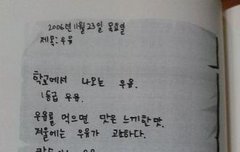 2006년 11월 23일 목요일
제목: 우유
학교에서 나오는 우유.
1등급 우유.
우유를 먹으면 맛은 느끼한 맛.
겨울에는 우유가 고소하다.